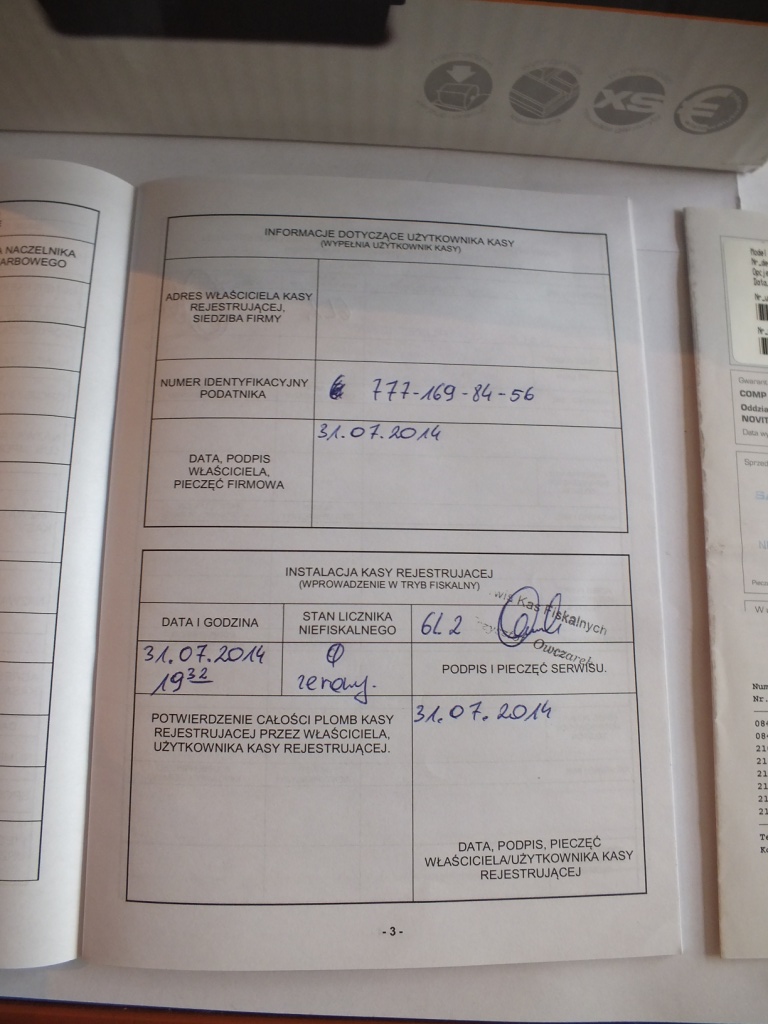 NACZELNIKA
ARBOWEGO
XS
€
INFORMACJE DOTYCZĄCE UŻYTKOWNIKA KASY
(WYPEŁNIA UŻYTKOWNIK KASY)
ADRES WŁAŚCICIELA KASY
REJESTRUJĄCEJ,
SIEDZIBA FIRMY
NUMER IDENTYFIKACYJNY
PODATNIKA
777-169-84-56
DATA, PODPIS
WŁAŚCICIELA,
PIECZĘĆ FIRMOWA
31.07.2014
INSTALACJA KASY REJESTRUJACEJ
(WPROWADZENIE W TRYB FISKALNY)
DATA I GODZINA
STAN LICZNIKA
NIEFISKALNEGO
6L2
Kas Fiskalnych
Owczarek
31.07.2014
19 32
0
zerowy.
PODPIS I PIECZĘĆ SERWISU.
POTWIERDZENIE CAŁOŚCI PLOMB KASY
REJESTRUJACEJ PRZEZ WŁAŚCICIELA,
UŻYTKOWNIKA KASY REJESTRUJĄCEJ.
31.07.2014
DATA, PODPIS, PIECZĘĆ
WŁAŚCICIELA/UŻYTKOWNIKA KASY
REJESTRUJĄCEJ
- 3 -
Model
Gwarant
COMP
Oddzia
NOVIT
Data wy
Sprzed
Num
Nr.
084
084
210
21
21
21
21
21